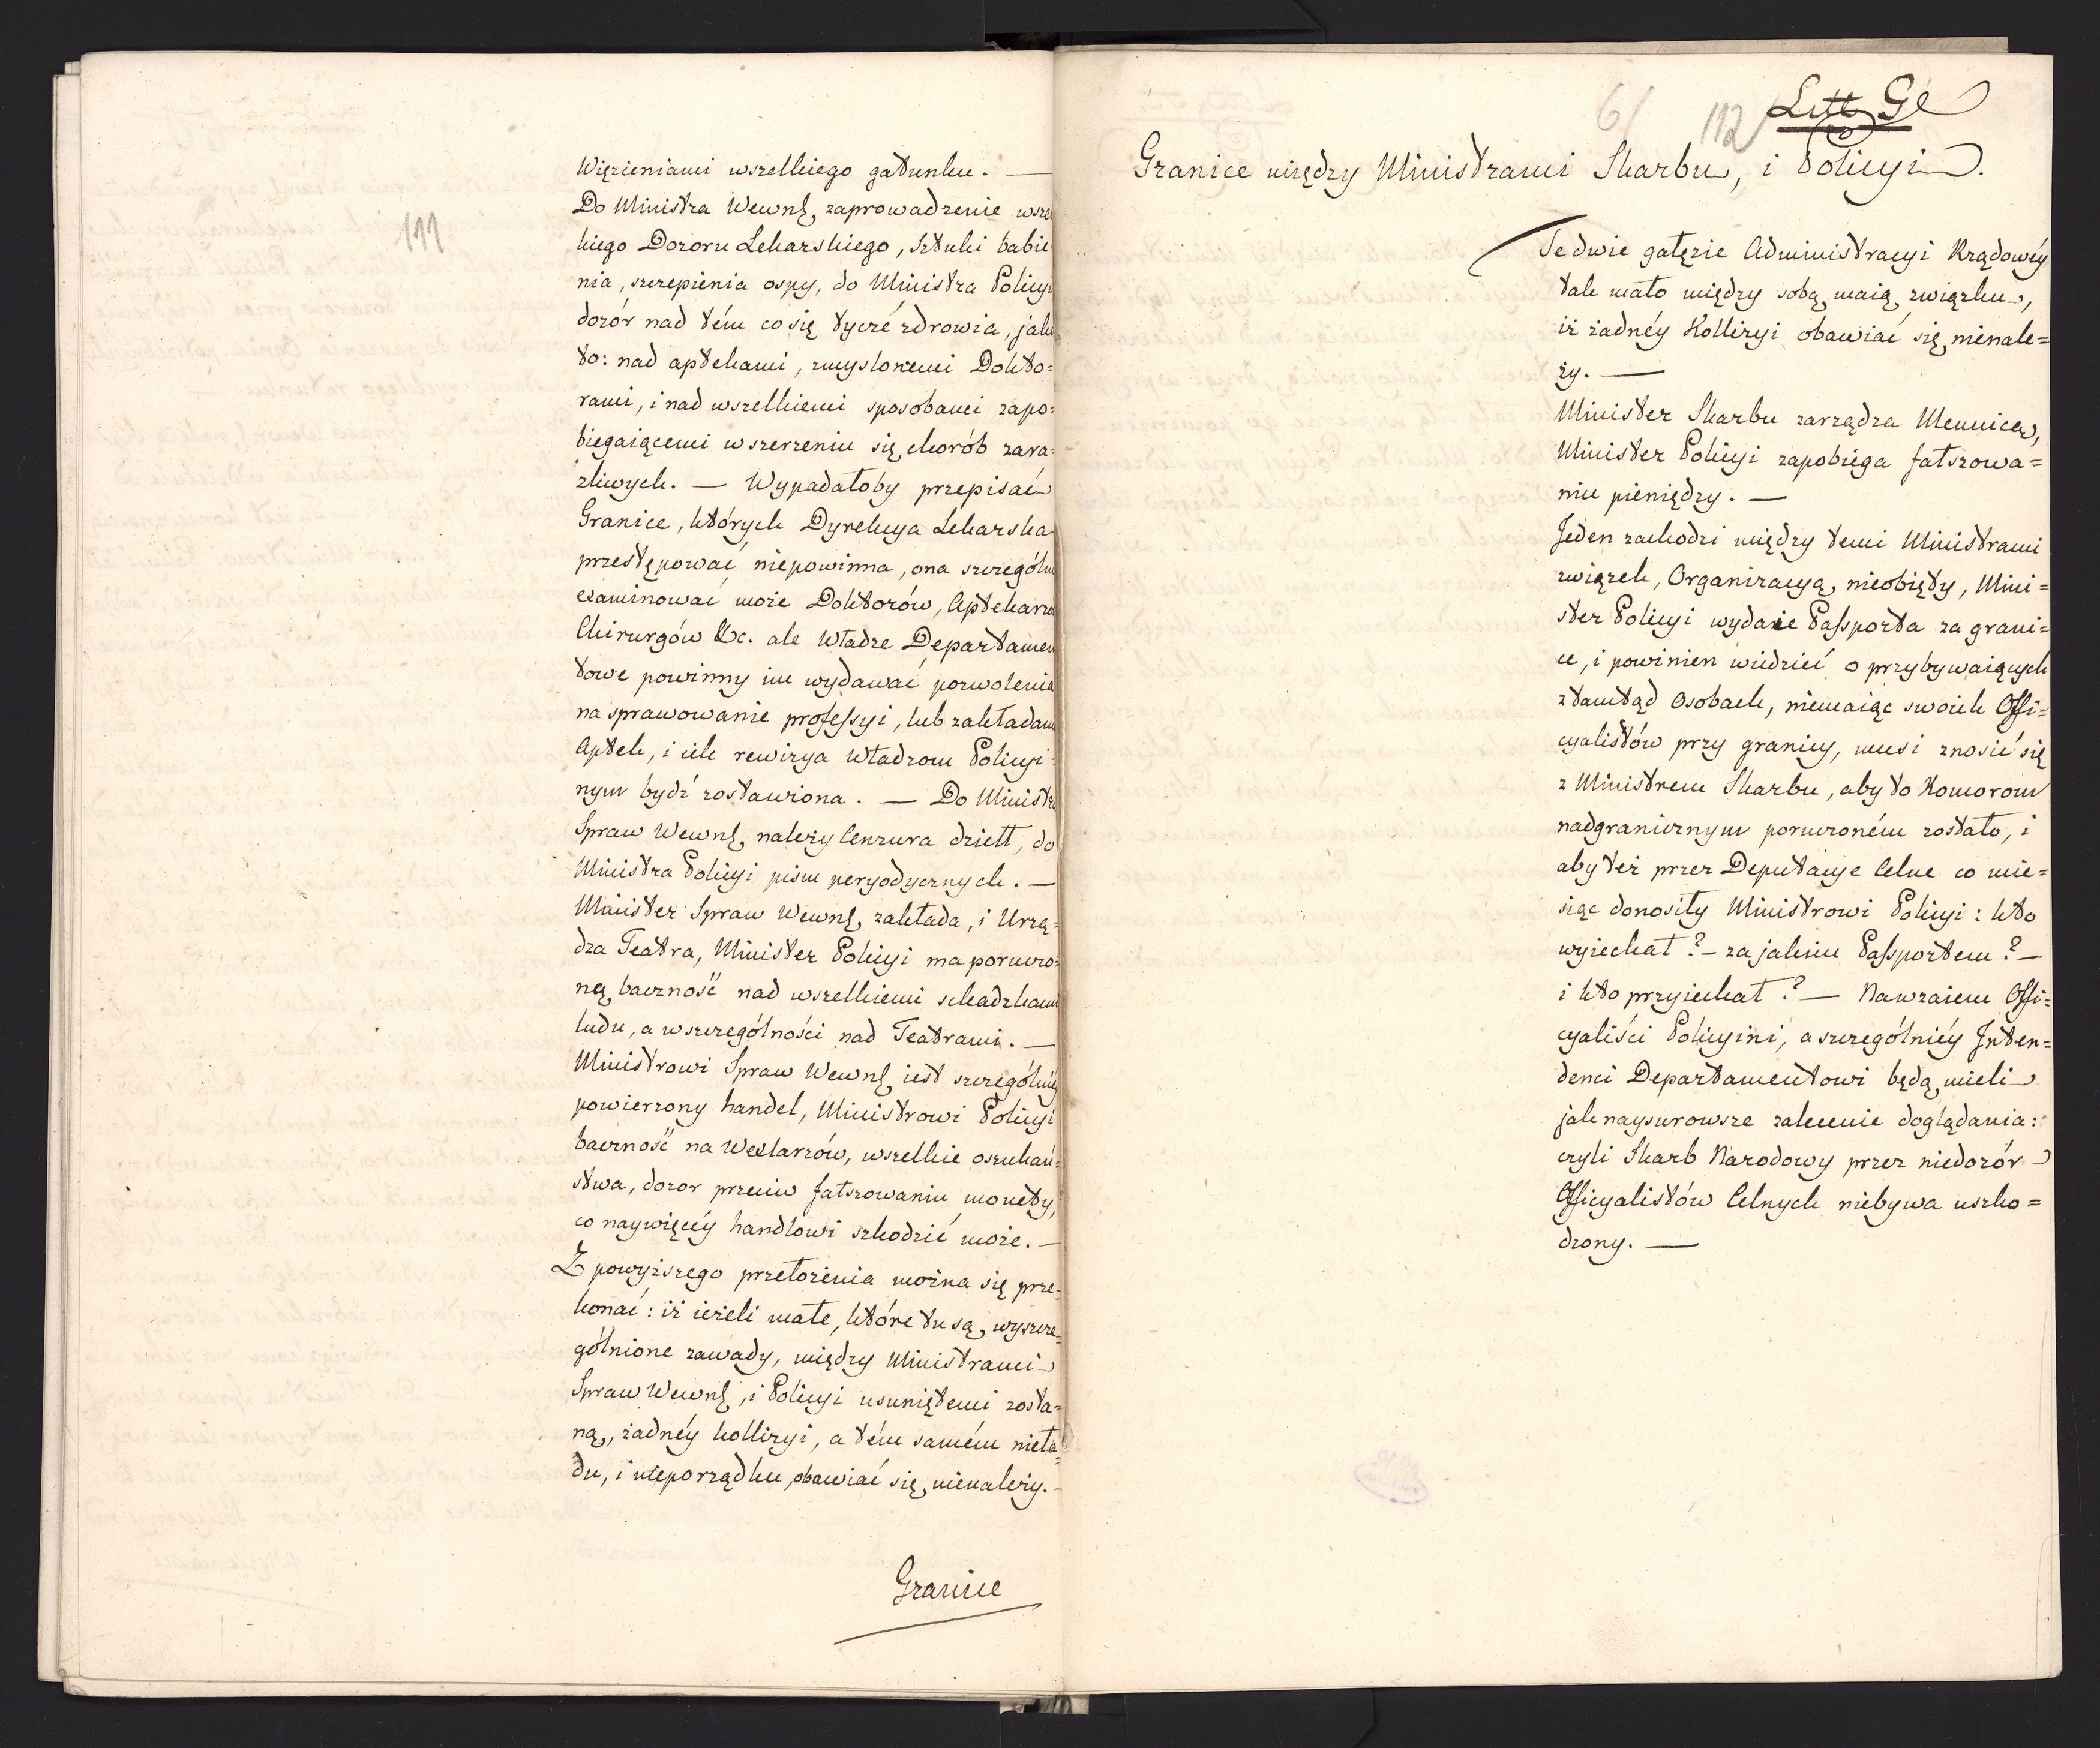 111
Więzieniami wszelkiego gatunku. —
Do Ministra Wewnę, zaprowadzenie wszel
kiego Dozoru Lekarskiego, sztuki babie-
nia, szczepienia ospy, do Ministra Policyi
dozór nad tém co się tycze zdrowia, jako
to: nad aptekami, zmyslonemi Dokto=
rami, i nad wszelkiemi sposobami zapo=
biegaiącemi w szerzeniu się chorób zara=
zliwych. — Wypadałoby przepisać
Granice, których Dyrekcya Lekarska
przestępować niepowinna, ona szczególn
examinować może Doktorów, Aptekarzo
Chirurgów &c. ale Władze Departamen
towe powinny im wydawać pozwolenia
na sprawowanie professyi, lub zakładani
Aptek, i ich rewizya Władzom Policyi=
nym bydź zostawiona. — Do Ministra
Spraw Wewnę, należy Cenzura dziełł, do
Ministra Policyi pism peryodycznych. —
Minister Spraw Wewnę, zakłada, i Urzą=
dza Teatra, Minister Policyi ma poruczo=
ną baczność nad wszelkiemi schadzkami
ludu, a w szczególności nad Teatrami. —
Ministrowi Spraw Wewnę, iest szczególniey
powierzony handel, Ministrowi Policyi
baczność na Wexlarzów, wszelkie oszukań=
stwa, dozor przeciw fałszowaniu monety,
co naywięcéy handlowi szkodzić może. —
Z powyższego przełożenia można się prze=
konać: iż ieżeli małe, które tu są, wyszcze=
gólnione zawady, między Ministrami
Spraw Wewnę, i Policyi usuniętemi zosta=
ną, żadnéy kollizyi, a tém samém nieła=
du, i nieporządku obawiać się nienależy. —
Granice
6/ 112 Litt G
Granice między Ministrami Skarbu, i Policyi.
Te dwie gałęzie Administracyi Rządowéy
tak mało między sobą maią związku,
iż żadnéy Kollizyi obawiać się nienale=
ży. —
Minister Skarbu zarządza Mennicą,
Minister Policyi zapobiega fałszowa=
niu pieniędzy. —
Jeden zachodzi między temi Ministrami
związek, Organizacyą nieobięty, Mini=
ster Policyi wydaie Passporta za grani=
ce, i powinien wiedzieć o przybywaiących
ztamtąd osobach, niemaiąc swoich Offi=
cyalistów przy granicy, musi znosić się
z Ministrem Skarbu, aby to Komorom
nadgranicznym poruczoném zostało, i
aby też przez Deputacye Celne co mie=
siąc donosiły Ministrowi Policyi: kto
wyiechał? – za jakim Passportem? –
i kto przyiechał? — Nawzaiem Offi=
cyaliści Policyini, a szczególniéy Inten=
denci Departamentowi będą mieli
jak naysurowsze zalecenie doglądania:
czyli Skarb Narodowy przez niedozór
Officyalistów Celnych niebywa uszko=
dzony. —